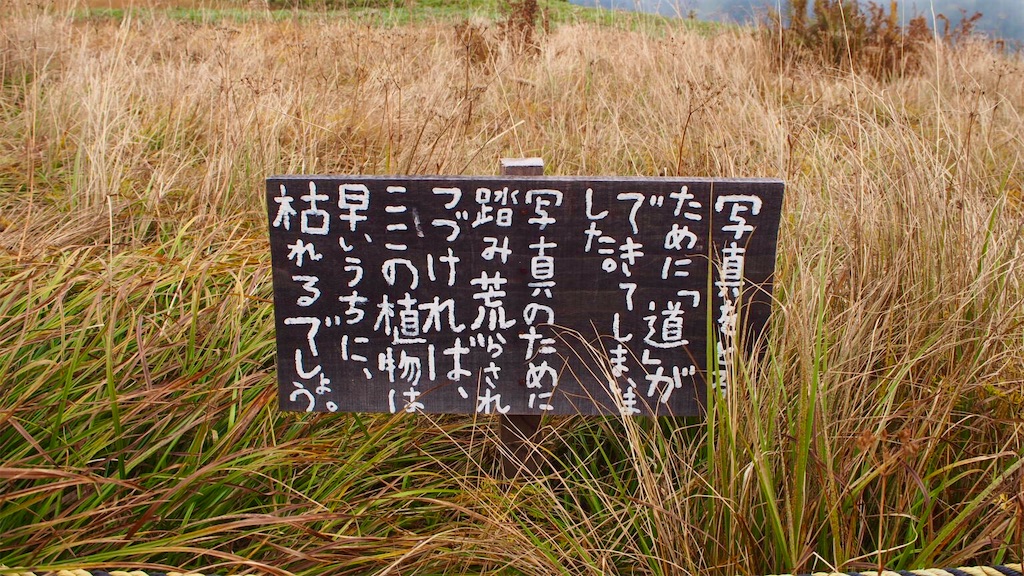 写真をとる
ために「道」が
できてしまいま
した。
写真のために
踏み荒らされ
つづければ、
ここの植物は
早いうちに、
枯れるでしょう。